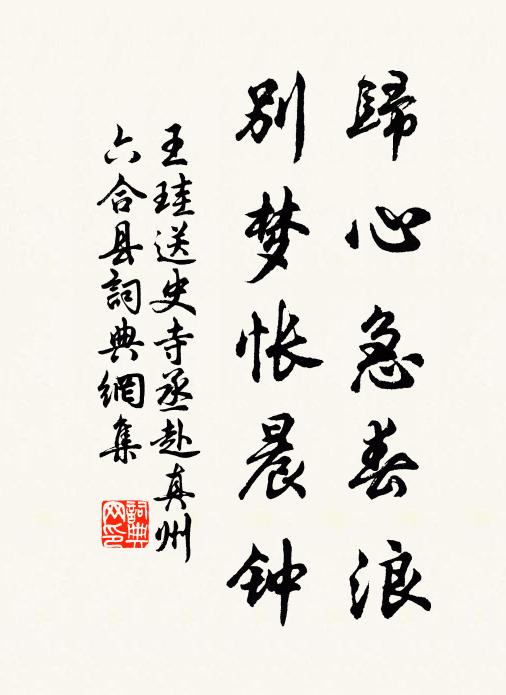 歸心急春浪
别梦怅晨钟
王珪送史寺丞赴真州
六合县詞典網集
詞典
网印